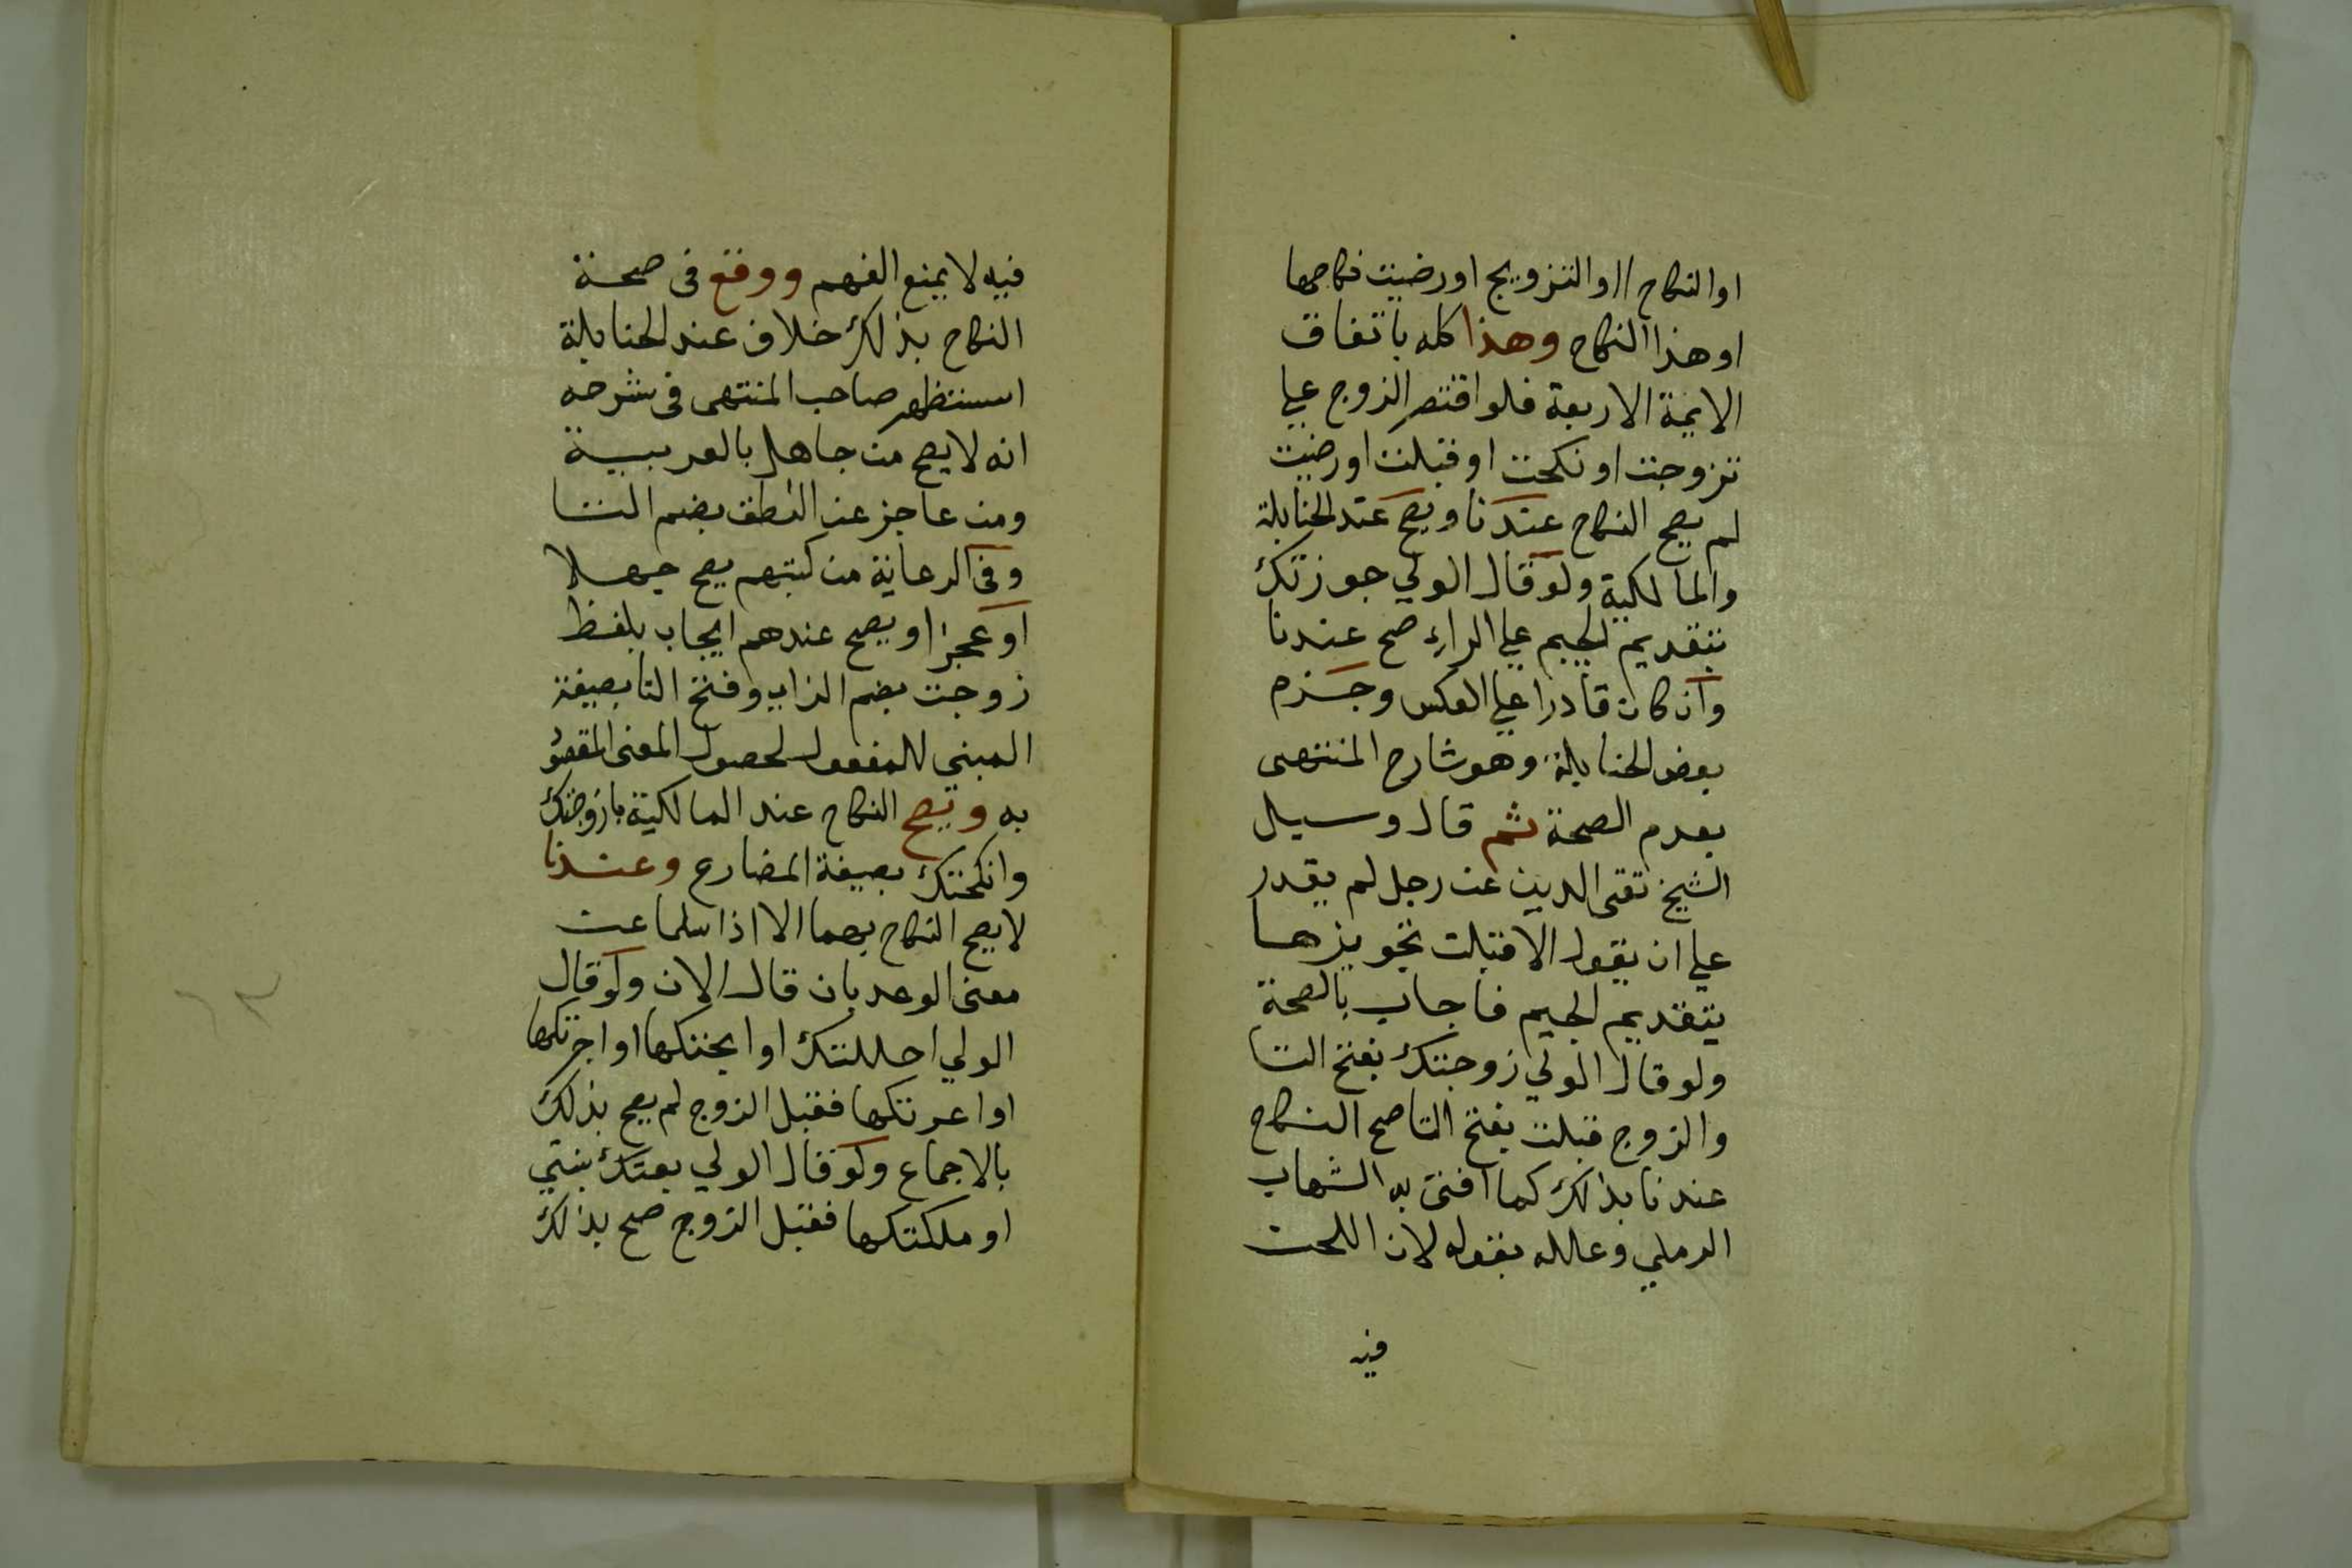 او النكاح او التزويج او رضيت نكاحها
او هذا النكاح وهذا كله باتفاق
الايمة الاربعة فلو اقتصر الزوج علي
تزوجت او نكحت او قبلت او رضيت
لم يصح النكاح عندنا ويصح عند الحنابلة
والمالكية ولو قال الولي جوزتك
بتقديم الجيم علي الراء صح عندنا
وان كان قادرا علي العكس وجزم
بعض الحنابلة وهو شارح المنتهى
بعدم الصحة ثم قال وسيل
الشيخ تقى الدين عن رجل لم يقدر
علي ان يقول الا قبلت تجويزها
بتقديم الجيم فاجاب بالصحة
ولو قال الولي زوجتك بفتح التا
والزوج قبلت بفتح التا صح النكاح
عندنا بذلك كما افتى به الشهاب
الرملي وعلله بقوله لان اللحن
فيه
فيه لا يمنع الفهم ووقع فى صحة
النكاح بذلك خلاف عند الحنابلة
استظهر صاحب المنتهى فى شرحه
انه لا يصح من جاهل بالعربية
ومن عاجز عن النطق بضم التا
وفى الرعاية من كتبهم يصح جهلا
او عجزا ويصح عندهم ايجاب بلفظ
زوجت بضم الزاي وفتح التا بصيغة
المبنى للمفعول لحصول المعنى المقصو
به ويصح النكاح عند المالكية بازوجتك
وانكحتك بصيغة المضارع وعندنا
لا يصح النكاح بهما الا اذا سلما عن
معنى الوعد بان قال الان ولو قال
الولي احللتك او ابحتكها او اجرتكها
او اعرتكها فقبل الزوج لم يصح بذلك
بالاجماع ولو قال الولي بعتك بنتي
او ملكتكها فقبل الزوج صح بذلك